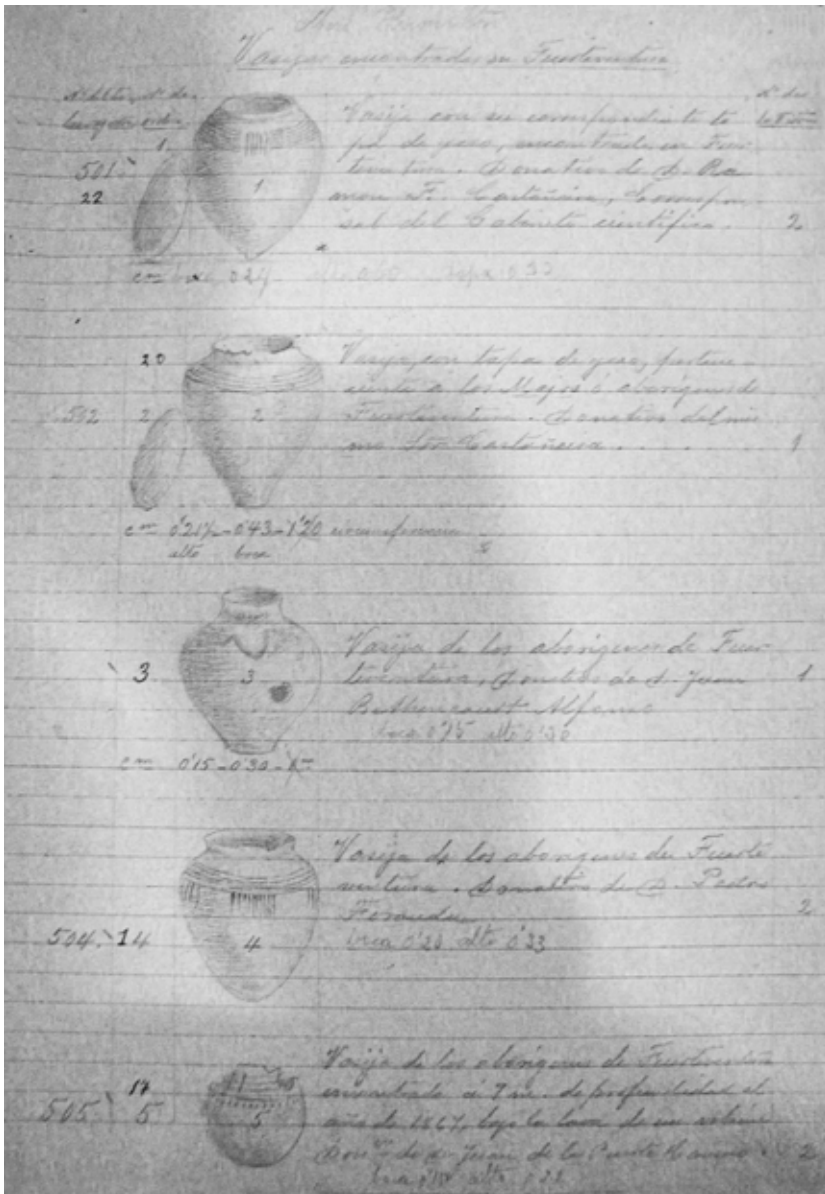 Vasijas encontradas en Fuerteventura
Nº de
1
501
22
Vasija con su correspondiente ta
pa de yeso, encontrada en Fuer-
teventura. Donativo de D. Ra
mon F. Castañeira,
del Gabinete científico.
2
0'24
20
502 2
Vasija, con tapa de yeso, pertene-
ciente a los Majos ó aborigenes de
Fuerteventura. Donativo del mis
mo Sor Castañeira
1
2
cm 0'21½-0'43-1'20 circunferencia
alto boca
3
3
Vasija de los aborigenes de Fuer-
teventura, donativo de D. Juan
Bethencourt Alfonso
1
boca 0'15 alto 0'30
cm 0'15-0'30-1
504 14
4
Vasija de los aborigenes de Fuerte
ventura. Donativo de D.
2
boca 0'23 alto 0'33
17
505 5
5
Vasija de los aborigenes de Fuerteventura
encontrada á 7 m. de profundidad el
año de 1867, bajo la lava de un volcan
de D. Juan de la Puerta Canseco
2
boca alto 0'22